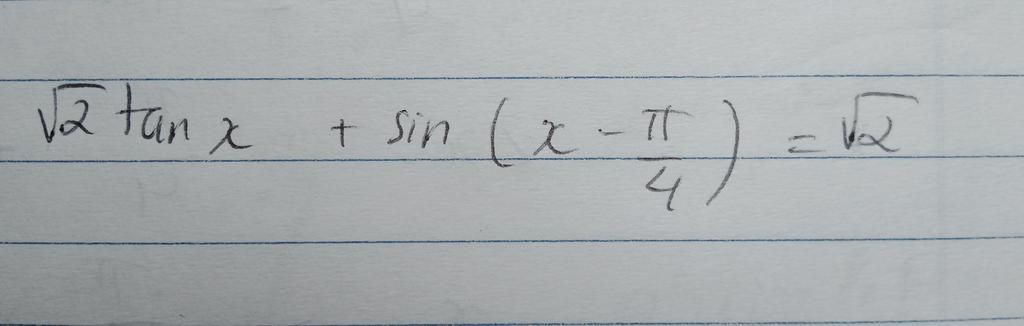 √2 tan x + sin (x - π/4) = √2